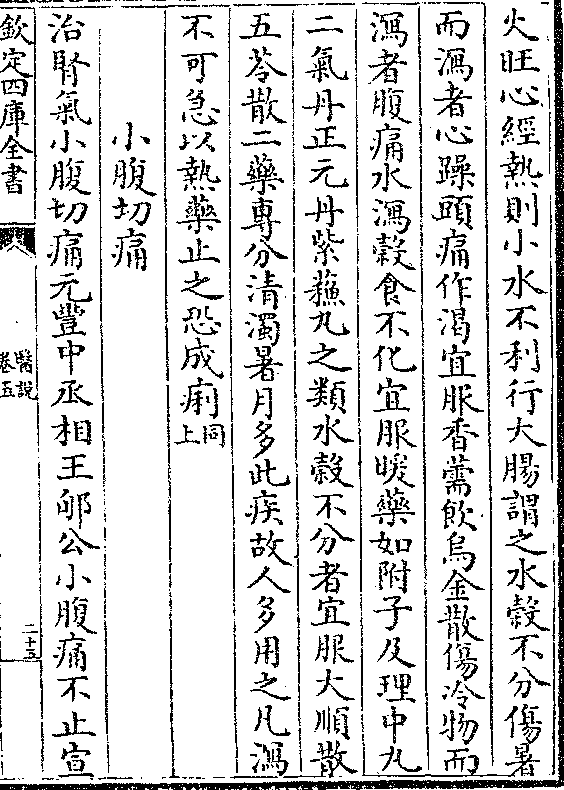 火旺心經熱則小水不利行大腸謂之水穀不分傷暑
而瀉者心躁頭痛作渴宜服香薷飲烏金散傷冷物而
瀉者腹痛水瀉穀食不化宜服暖藥如附子及理中丸
二氣丹正元丹紫蘓丸之類水穀不分者宜服大順散
五苓散二藥專分清濁暑月多此疾故人多用之凡瀉
不可急以熱藥止之恐成痢同上
小腹切痛
治腎氣小腹切痛元豐中丞相王郇公小腹痛不止宣
欽定四庫全書
醫說
卷五
二十五